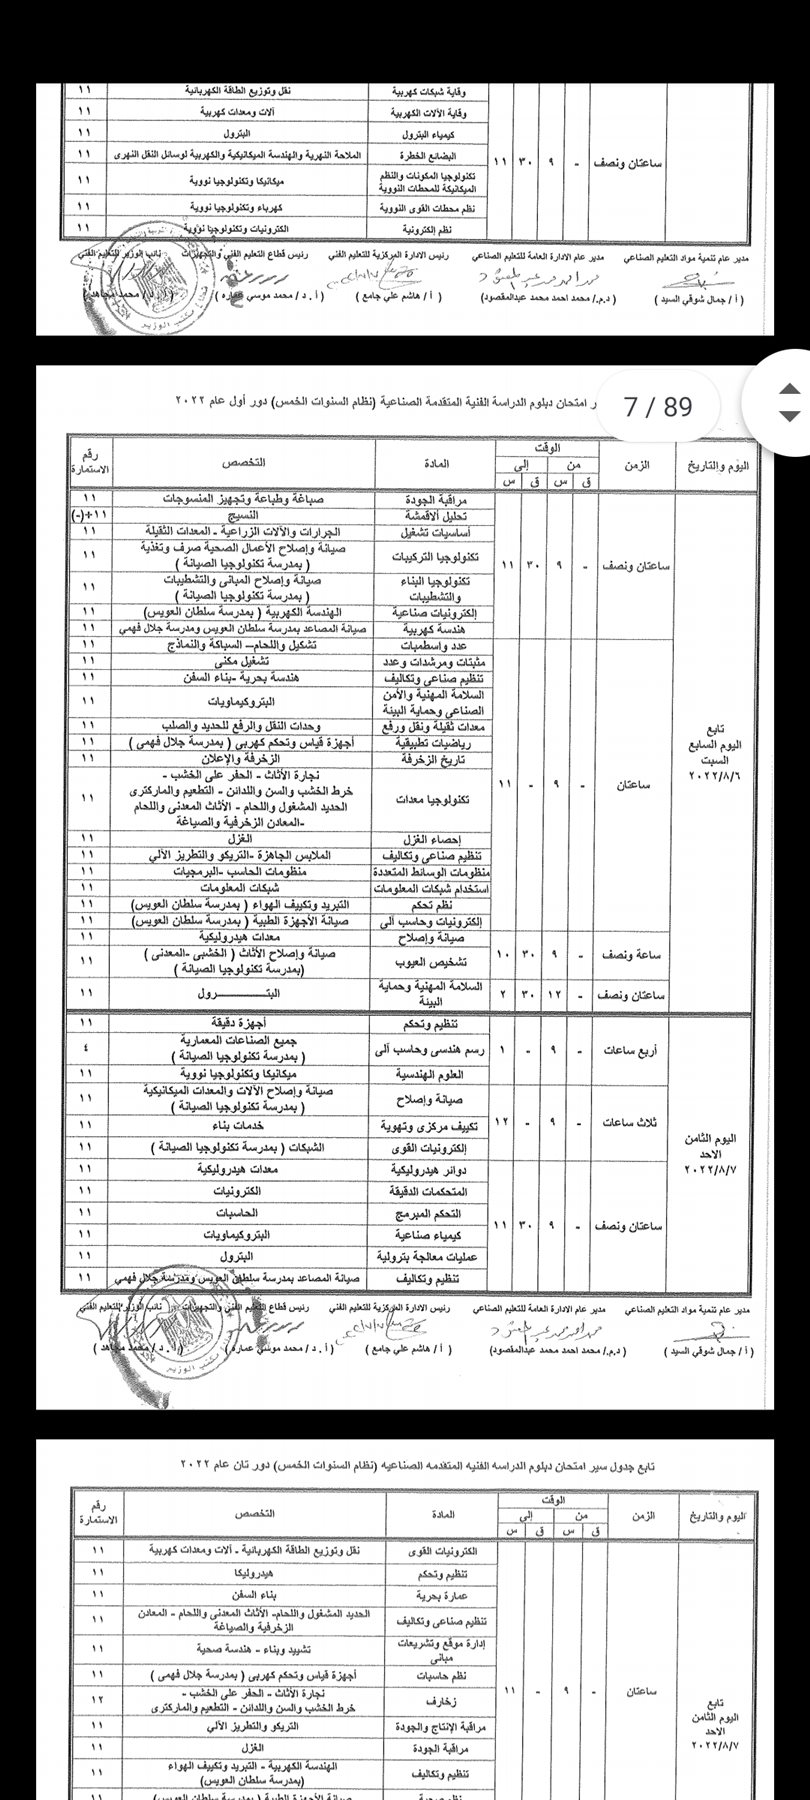 وقاية شبكات كهربية نقل وتوزيع الطاقة الكهربائية ١١
وقاية الآلات الكهربية آلات ومعدات كهربية ١١
كيمياء البترول البترول ١١
ساعتان ونصف - ٩ ٣٠ ١١ البضائع الخطرة الملاحة النهرية والهندسة الميكانيكية والكهربية لوسائل النقل النهرى ١١
تكنولوجيا المكونات والنظم
الميكانيكة للمحطات النووية ميكانيكا وتكنولوجيا نووية ١١
نظم محطات القوى النووية كهرباء وتكنولوجيا نووية ١١
نظم إلكترونية الكترونيات وتكنولوجيا نووية ١١
مدير عام تنمية مواد التعليم الصناعي مدير عام الادارة العامة للتعليم الصناعي رئيس الادارة المركزية للتعليم الفني رئيس قطاع التعليم الفني والتجهيزات نائب الوزير للتعليم الفني
( أ / جمال شوقي السيد ) ( د.م./ محمد احمد محمد عبدالمقصود) ( أ / هاشم علي جامع ) ( أ . د / محمد موسي عماره ) ( أ . د / محمد مجاهد )
7 / 89
ر امتحان دبلوم الدراسة الفنية المتقدمة الصناعية (نظام السنوات الخمس) دور أول عام ٢٠٢٢
اليوم والتاريخ الزمن الوقت المادة التخصص رقم الاستمارة
من إلى
ق س ق س
مراقبة الجودة صباغة وطباعة وتجهيز المنسوجات ١١
تحليل أقمشة النسيج ١١+(-)
أساسيات تشغيل الجرارات والآلات الزراعية - المعدات الثقيلة ١١
ساعتان ونصف - ٩ ٣٠ ١١ تكنولوجيا التركيبات صيانة وإصلاح الأعمال الصحية صرف وتغذية
( بمدرسة تكنولوجيا الصيانة ) ١١
تكنولوجيا البناء
والتشطيبات صيانة وإصلاح المبانى والتشطيبات
( بمدرسة تكنولوجيا الصيانة ) ١١
إلكترونيات صناعية الهندسة الكهربية ( بمدرسة سلطان العويس) ١١
هندسة كهربية صيانة المصاعد بمدرسة سلطان العويس ومدرسة جلال فهمي ١١
عدد واسطمبات تشكيل واللحام– السباكة والنماذج ١١
مثبتات ومرشدات وعدد تشغيل مكنى ١١
تنظيم صناعى وتكاليف هندسة بحرية -بناء السفن ١١
السلامة المهنية والأمن
الصناعى وحماية البيئة البتروكيماويات ١١
معدات ثقيلة ونقل ورفع وحدات النقل والرفع للحديد والصلب ١١
رياضيات تطبيقية أجهزة قياس وتحكم كهربى ( بمدرسة جلال فهمى ) ١١
تاريخ الزخرفة الزخرفة والإعلان ١١
تابع
اليوم السابع
السبت
٢٠٢٢/٨/٦
ساعتان - ٩ - ١١ تكنولوجيا معدات نجارة الأثاث - الحفر على الخشب -
خرط الخشب والسن واللدائن - التطعيم والماركترى
الحديد المشغول واللحام - الأثاث المعدنى واللحام
-المعادن الزخرفية والصياغة ١١
إحصاء الغزل الغزل ١١
تنظيم صناعى وتكاليف الملابس الجاهزة -التريكو والتطريز الآلي ١١
منظومات الوسائط المتعددة منظومات الحاسب -البرمجيات ١١
استخدام شبكات المعلومات شبكات المعلومات ١١
نظم تحكم التبريد وتكييف الهواء ( بمدرسة سلطان العويس) ١١
إلكترونيات وحاسب آلى صيانة الأجهزة الطبية ( بمدرسة سلطان العويس) ١١
ساعة ونصف - ٩ ٣٠ ١٠ صيانة وإصلاح معدات هيدروليكية ١١
تشخيص العيوب صيانة وإصلاح الأثاث ( الخشبى -المعدنى )
(بمدرسة تكنولوجيا الصيانة ) ١١
ساعتان ونصف - ١٢ ٣٠ ٢ السلامة المهنية وحماية
البيئة البتـــــــــرول ١١
تنظيم وتحكم أجهزة دقيقة ١١
أربع ساعات - ٩ - ١ رسم هندسى وحاسب آلى جميع الصناعات المعمارية
( بمدرسة تكنولوجيا الصيانة ) ٤
العلوم الهندسية ميكانيكا وتكنولوجيا نووية ١١
ثلاث ساعات - ٩ - ١٢ صيانة وإصلاح صيانة وإصلاح الآلات والمعدات الميكانيكية
( بمدرسة تكنولوجيا الصيانة ) ١١
تكييف مركزى وتهوية خدمات بناء ١١
إلكترونيات القوى الشبكات ( بمدرسة تكنولوجيا الصيانة ) ١١
اليوم الثامن
الاحد
٢٠٢٢/٨/٧
دوائر هيدروليكية معدات هيدروليكية ١١
المتحكمات الدقيقة الكترونيات ١١
التحكم المبرمج الحاسبات ١١
ساعتان ونصف - ٩ ٣٠ ١١ كيمياء صناعية البتروكيماويات ١١
عمليات معالجة بترولية البترول ١١
تنظيم وتكاليف صيانة المصاعد بمدرسة سلطان العويس ومدرسة جلال فهمي ١١
مدير عام تنمية مواد التعليم الصناعي مدير عام الادارة العامة للتعليم الصناعي رئيس الادارة المركزية للتعليم الفني رئيس قطاع التعليم الفني والتجهيزات نائب الوزير للتعليم الفني
( أ / جمال شوقي السيد ) ( د.م./ محمد احمد محمد عبدالمقصود) ( أ / هاشم علي جامع ) ( أ . د / محمد موسي عماره ) ( أ . د / محمد مجاهد )
تابع جدول سير امتحان دبلوم الدراسه الفنيه المتقدمه الصناعيه (نظام السنوات الخمس) دور ثان عام ٢٠٢٢
اليوم والتاريخ الزمن الوقت المادة التخصص رقم الاستمارة
من إلى
ق س ق س
الكترونيات القوى نقل وتوزيع الطاقة الكهربائية - آلات ومعدات كهربية ١١
تنظيم وتحكم هيدروليكا ١١
عمارة بحرية بناء السفن ١١
تنظيم صناعى وتكاليف الحديد المشغول واللحام- الأثاث المعدنى واللحام - المعادن
الزخرفية والصياغة ١١
إدارة موقع وتشريعات
مبانى تشييد وبناء - هندسة صحية ١١
نظم حاسبات أجهزة قياس وتحكم كهربى ( بمدرسة جلال فهمى ) ١١
تابع
اليوم الثامن
الاحد
٢٠٢٢/٨/٧
ساعتان - ٩ - ١١ زخارف نجارة الأثاث - الحفر على الخشب -
خرط الخشب والسن واللدائن - التطعيم والماركترى ١٢
مراقبة الإنتاج والجودة التريكو والتطريز الآلي ١١
مراقبة الجودة الغزل ١١
تنظيم وتكاليف الهندسة الكهربية - التبريد وتكييف الهواء
(بمدرسة سلطان العويس) ١١
صيانة الأجهزة الطبية (بمدرسة سلطان العويس) ١١